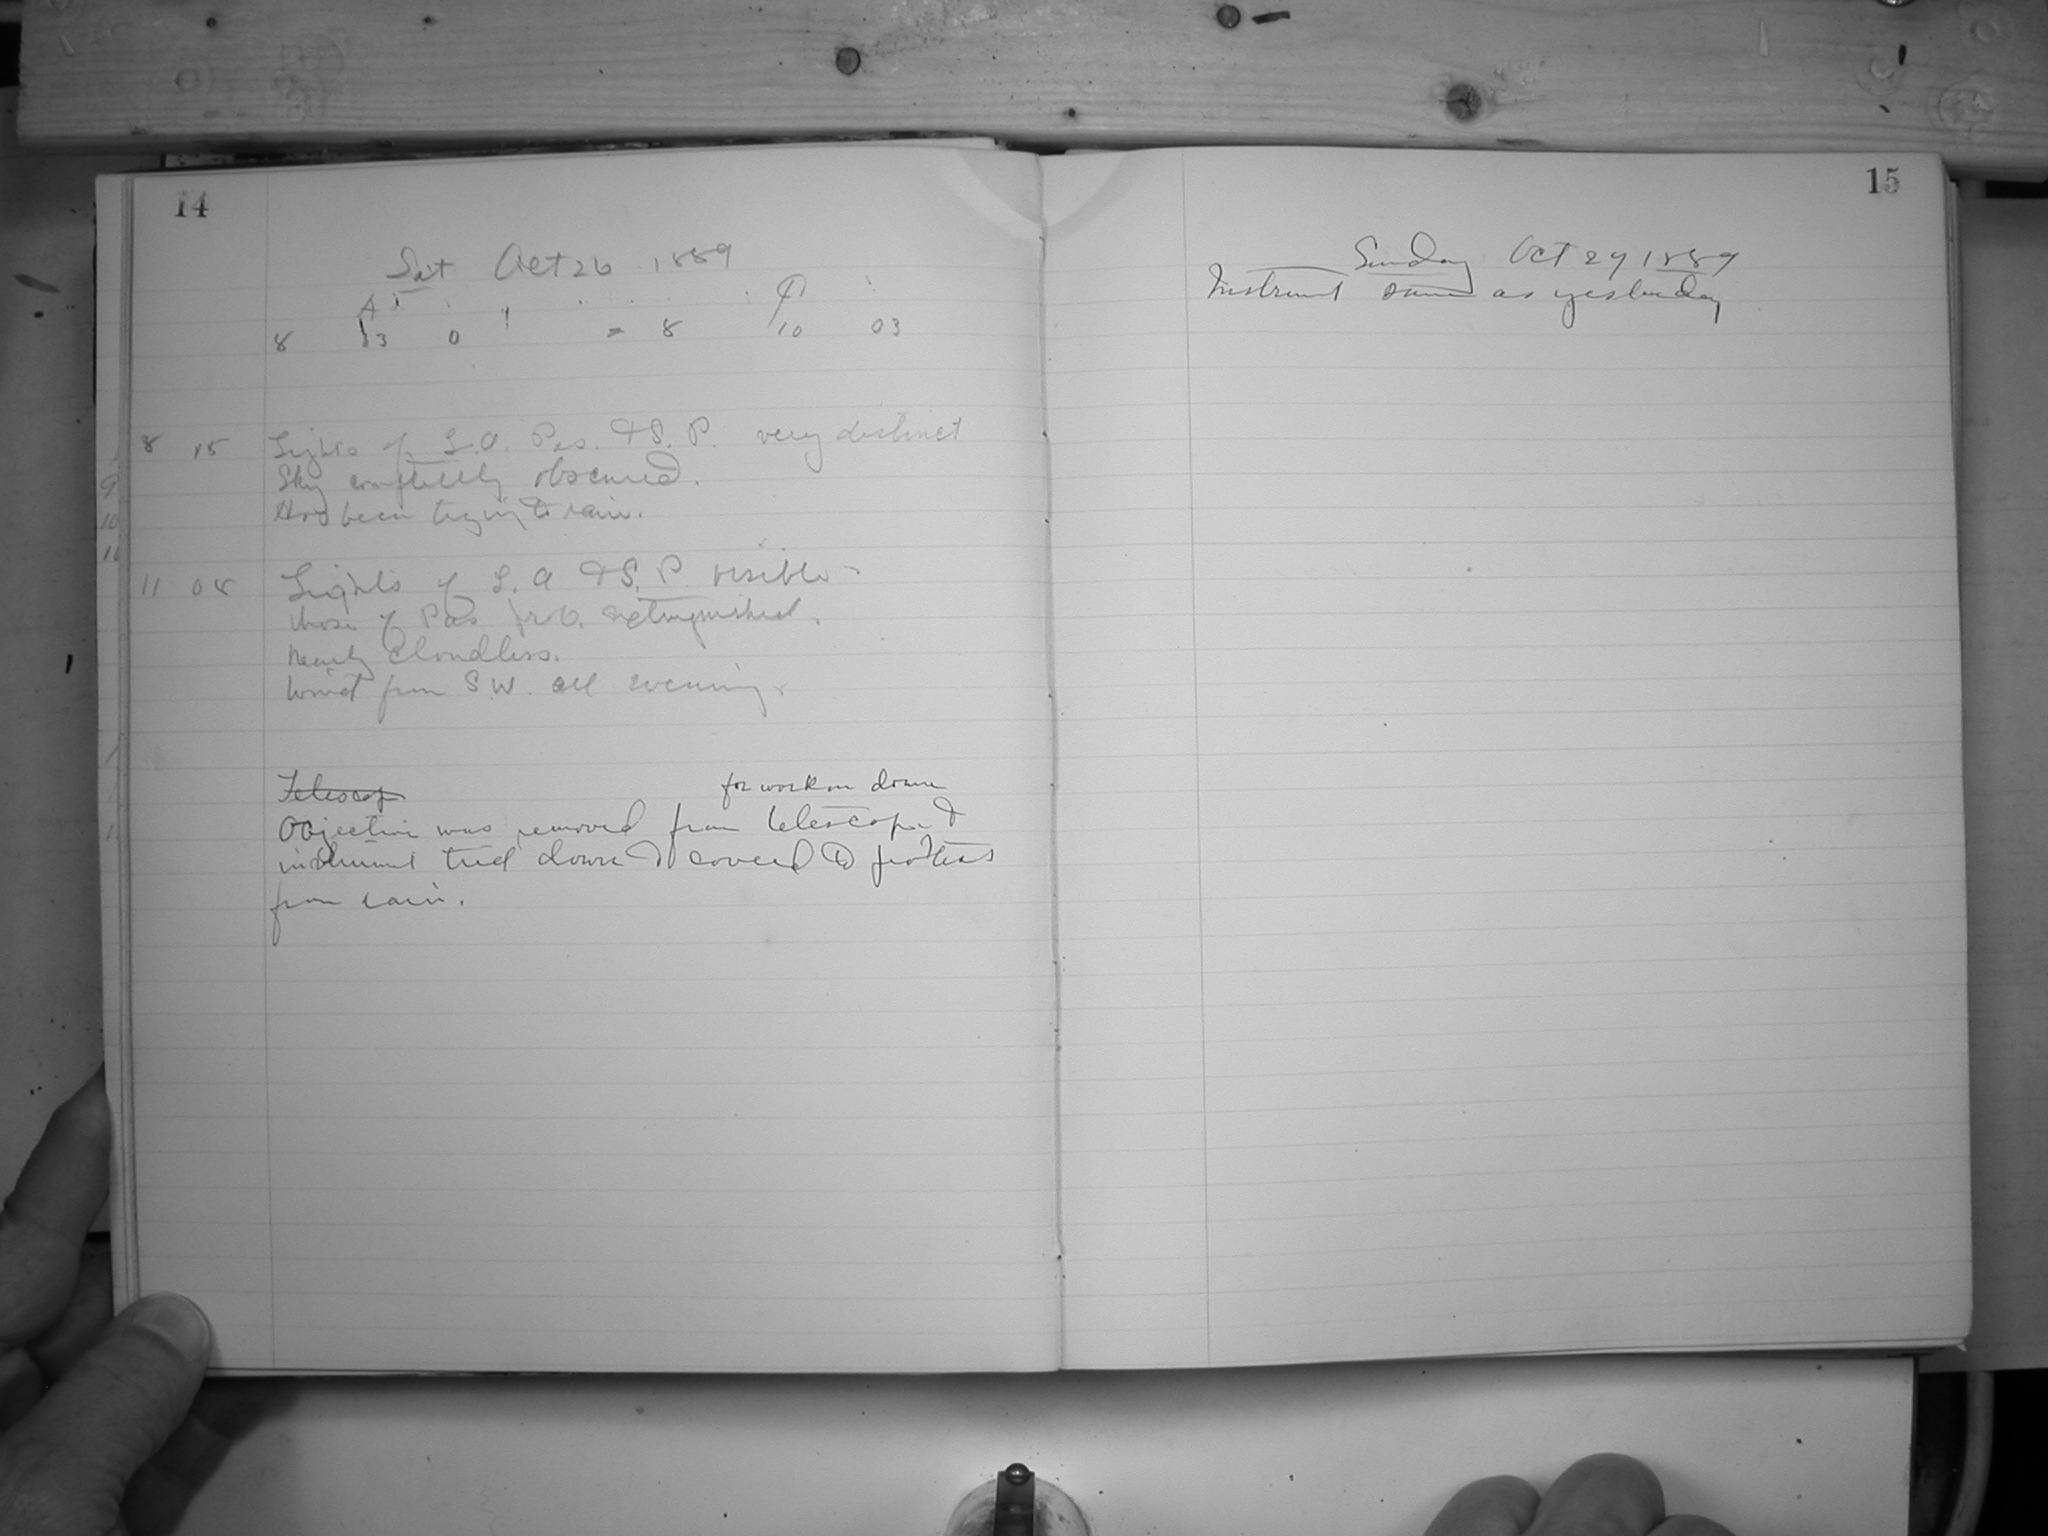 14
Sat Oct 26 1889
8 13 0 = 8 10 03
8 15 Lights of L.A. Pas. & S. P. very distinct
Sky completely obscured.
Has been trying to rain.
11 08 Lights of L. A & S. P. visible -
those of Pas prob. extinguished.
Nearly cloudless.
Wind from S.W. all evening.
Telescop
for work on dome
Objective was removed from telescope &
instrument tied down & covered to protect
from rain.
15
Sunday Oct 27 1889
Instrument same as yesterday